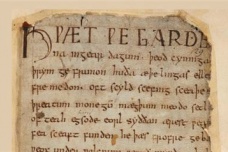 HǷÆT ǷE GARDE
na ingear dagum. þeod cyninga
þrym ge frunon huða æþelingas elle
fre medon. oft scyld scefing sceaþe
þreatum monegū mægþum meodo setl
of teah egsode eorl syððan ærest
feasceaft funden he þæs frofre ge